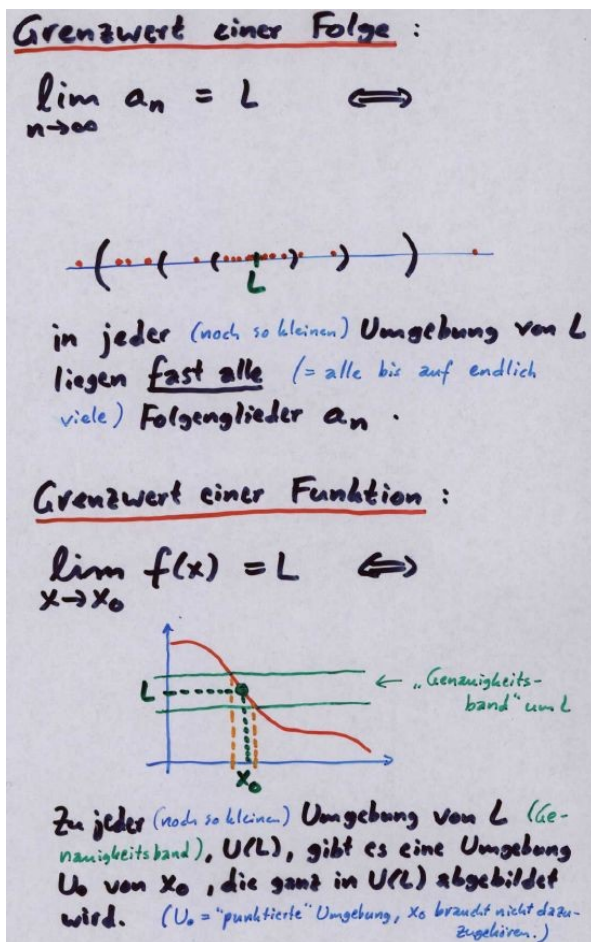 Grenzwert einer Folge :
lim aₙ = L ⟺
n→∞
( ( ( ) ) )
L
in jeder (noch so kleinen) Umgebung von L
liegen fast alle (= alle bis auf endlich
viele) Folgenglieder aₙ .
Grenzwert einer Funktion :
lim f(x) = L ⟺
x→x₀
L
← „Genauigkeits-
band" um L
x₀
Zu jeder (noch so kleinen) Umgebung von L (Ge-
nauigkeitsband), U(L), gibt es eine Umgebung
U₀ von x₀, die ganz in U(L) abgebildet
wird. (U₀ = "punktierte" Umgebung, x₀ braucht nicht dazu-
zugehören.)